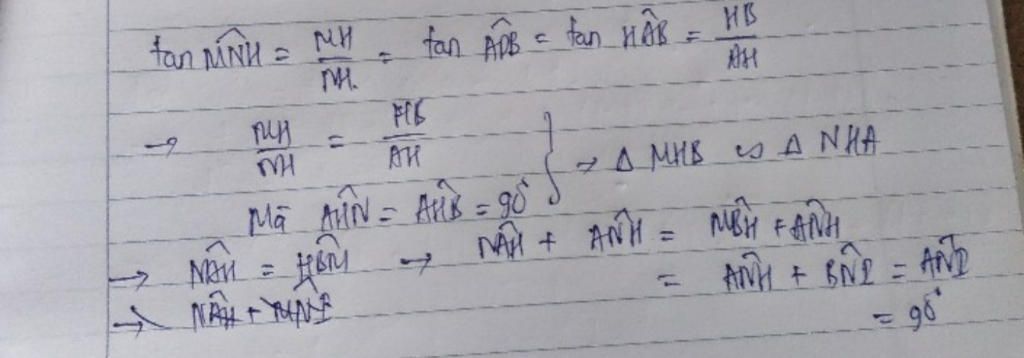 tan MN̂H = MH/NH = tan AD̂B = tan HÂB = HB/AH
→ MH/NH = HB/AH
Mà AĤN = AĤB = 90° } → Δ MHB ∽ Δ NHA
→ NÂH = HB̂M → NÂH + AN̂H = MB̂H + AN̂H
= AN̂H + BN̂I = AN̂I
→ NÂH +
= 90°